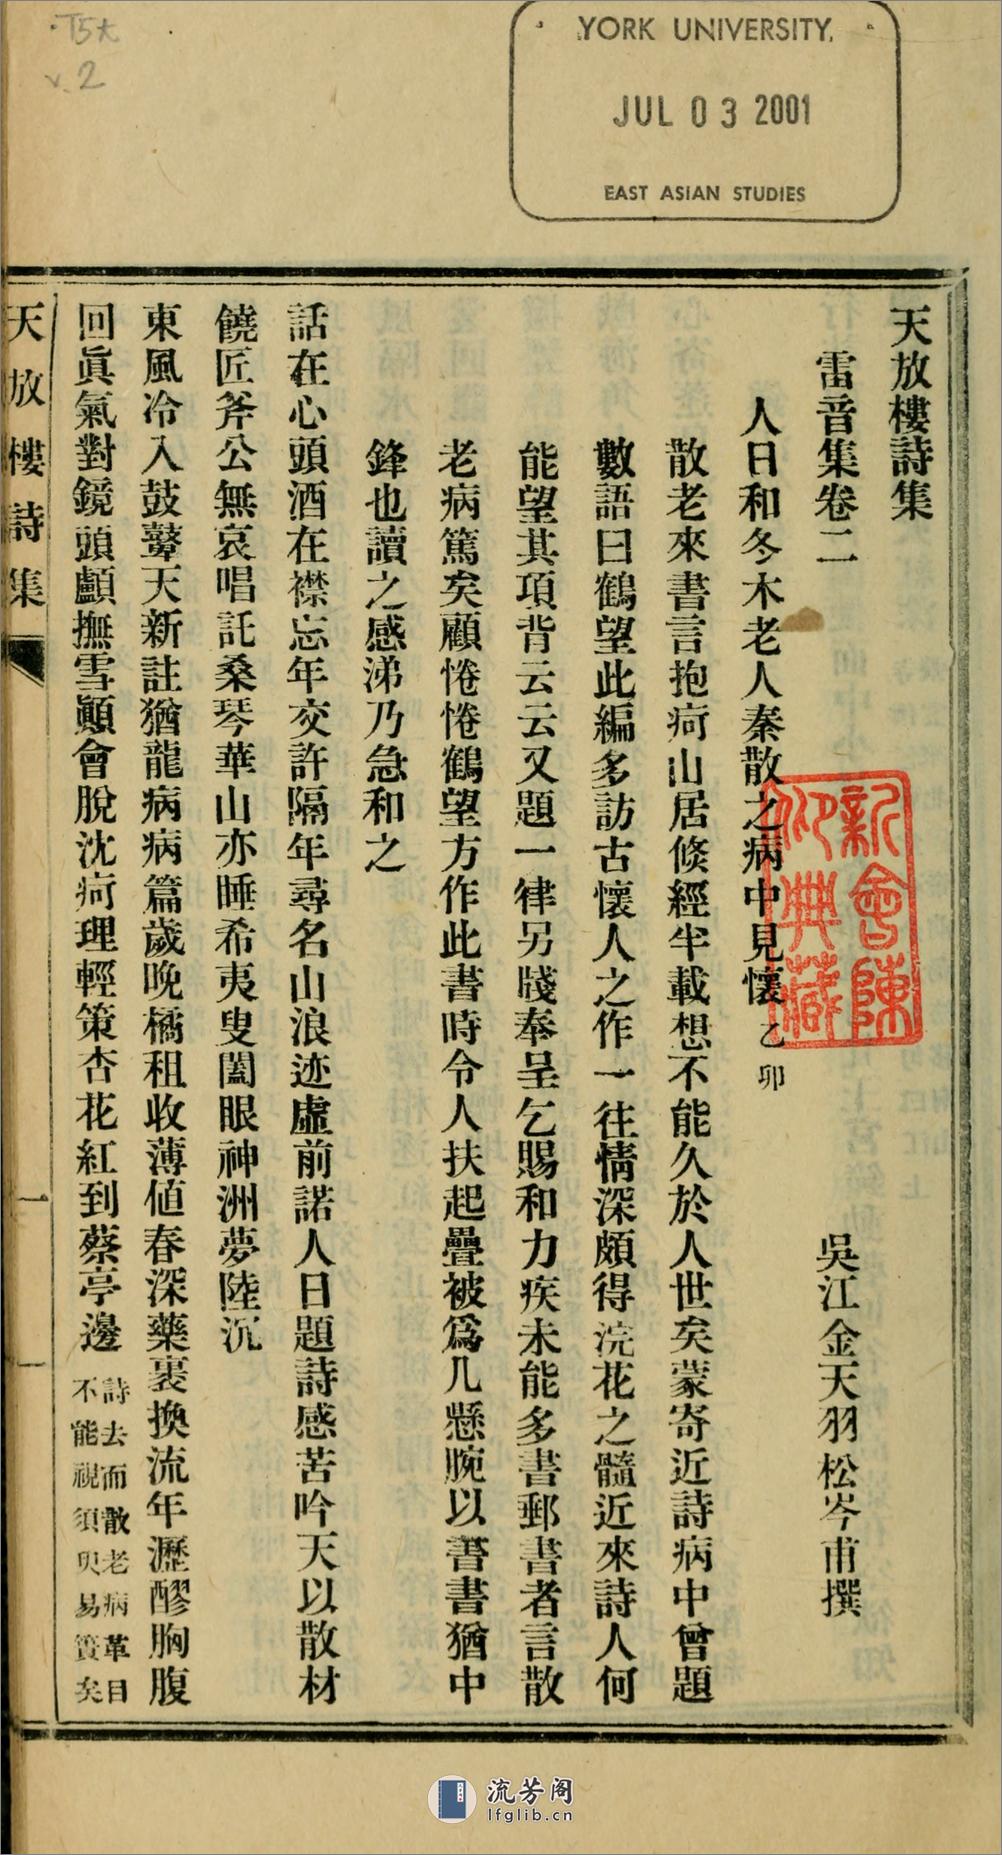 T5大
v.2
YORK UNIVERSITY
JUL 03 2001
EAST ASIAN STUDIES
天放樓詩集
雷音集卷二
吳江金天羽松岑甫撰
人日和冬木老人秦散之病中見懷乙卯
散老來書言抱疴山居倏經半載想不能久於人世矣蒙寄近詩病中曾題
數語曰鶴望此編多訪古懷人之作一往情深頗得浣花之髓近來詩人何
能望其項背云云又題一律另牋奉呈乞賜和力疾未能多書郵書者言散
老病篤矣顧惓惓鶴望方作此書時令人扶起疊被爲几懸腕以書書猶中
鋒也讀之感涕乃急和之
話在心頭酒在襟忘年交許隔年尋名山浪迹虛前諾人日題詩感苦吟天以散材
饒匠斧公無哀唱託桑琴華山亦睡希夷叟闔眼神洲夢陸沉
東風冷入鼓鼙天新註猶龍病病篇歲晚橘租收薄値春深藥裹換流年瀝醪胸腹
回眞氣對鏡頭顱撫雪顚會脫沈疴理輕策杏花紅到蔡亭邊
詩去而散老病革目
不能視須臾易簀矣
天放樓詩集
一
一
新會陳
澂典藏
流芳阁
lfglib.cn